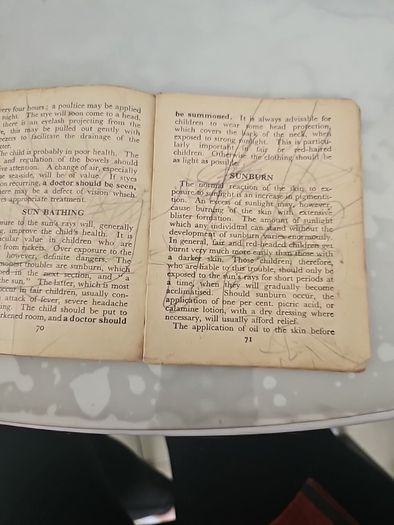 very four hours; a poultice may be applied
night. The stye will soon come to a head,
there is an eyelash projecting from the
re, this may be pulled out gently with
ezers to facilitate the drainage of the
tter.
The child is probably in poor health. The
and regulation of the bowels should
ive attention. A change of air, especially
he sea-side, will be of value. If styes
on recurring, a doctor should be seen,
here may be a defect of vision which
res appropriate treatment.
SUN BATHING
sure to the sun's rays will, generally
g, improve the child's health. It is
icular value in children who are
from rickets. Over exposure to the
however, definite dangers. The
monest troubles are sunburn, which
bed in the next section, and "a
the sun." The latter, which is most
occur in fair children, usually con-
attack of fever, severe headache
ing. The child should be put to
rkened room, and a doctor should
70
be summoned. It is always advisable for
children to wear some head protection,
which covers the back of the neck, when
exposed to strong sunlight. This is particu-
larly important in fair or red-haired
children. Otherwise the clothing should be
as light as possible.
SUNBURN
The normal reaction of the skin to ex-
posure to sunlight is an increase in pigmenta-
tion. An excess of sunlight may, however,
cause burning of the skin with extensive
blister formation. The amount of sunlight
which any individual can stand without the
development of sunburn varies enormously.
In general, fair and red-headed children get
burnt very much more easily than those with
a darker skin. Those children, therefore,
who are liable to this trouble, should only be
exposed to the sun's rays for short periods at
a time, when they will gradually become
acclimatised. Should sunburn occur, the
application of one per cent. picric acid, or
calamine lotion, with a dry dressing where
necessary, will usually afford relief.
The application of oil to the skin before
71